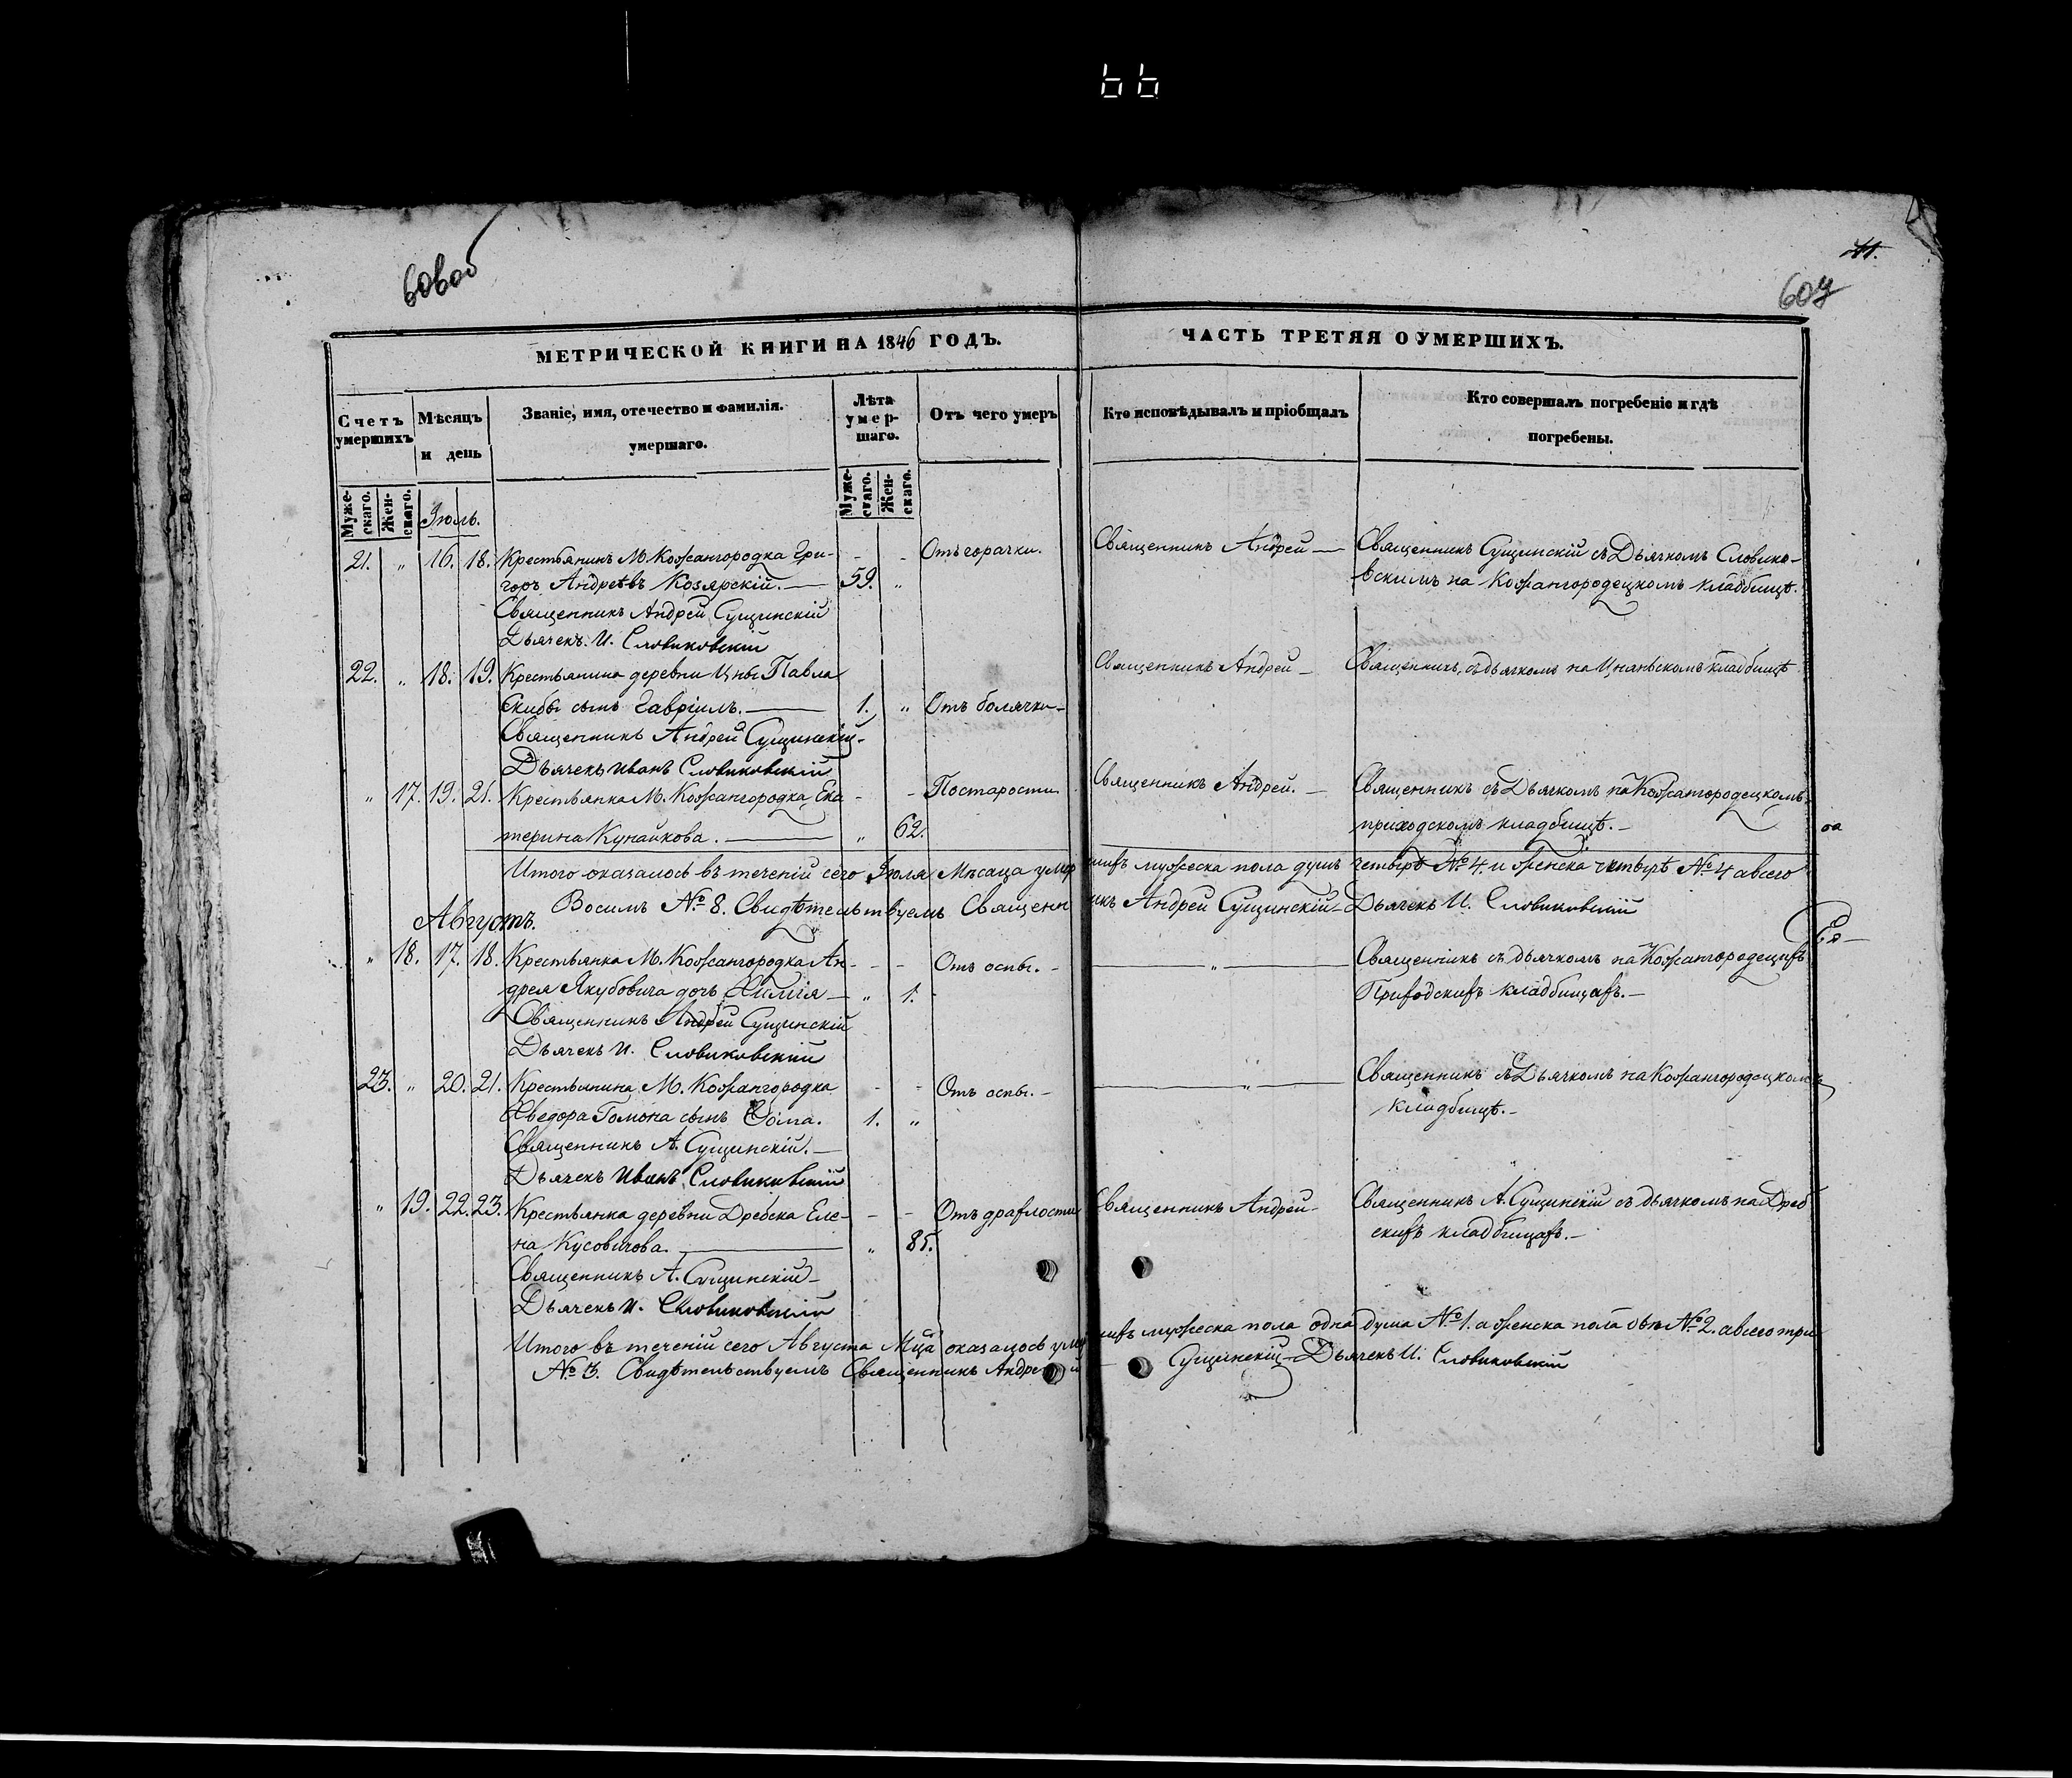 66
606об
41.
607
МЕТРИЧЕСКОЙ КНИГИ НА 1846 ГОДЪ.
ЧАСТЬ ТРЕТЯЯ О УМЕРШИХЪ.
Счетъ умершихъ
Мѣсяцъ и день
Званіе, имя, отечество и фамилія. умершаго.
Лѣта умершаго.
Отъ чего умеръ
Кто исповѣдывалъ и пріобщалъ
Кто совершалъ погребеніе и гдѣ погребены.
Мужескаго. Женскаго.
Мужескаго. Женскаго.
Іюль.
21. „ 16. 18. Крестьянинъ М. Кожангородка Гри- - - Отъ горачки. Священникъ Андрей — Священникъ Сущинскій съ Дьячкомъ Словико-
горъ Андреевъ Козярскій. — 59. „ вскимъ на Кожангородецкомъ кладбищѣ.
Священникъ Андрей Сущинскій
Дьячекъ И. Словиковскій
22. „ 18. 19. Крестьянина деревни Цны Павла Священникъ Андрей — Священникъ съ дьячкомъ на Цняньскомъ кладбищѣ
Скибы сынъ Гавріилъ. — 1. „ Отъ болячки-
Священникъ Андрей Сущинскій-
Дьячекъ Иванъ Словиковскій
„ 17. 19. 21. Крестьянка М. Кожангородка Ека - - Постарости Священникъ Андрей. — Священникъ съ Дьячкомъ на Кожангородецкомъ
терина Кунайкова. — „ 62. приходскомъ кладбищѣ. —
Итого оказалось въ теченіи сего Іюля Мѣсаца умершихъ мужеска пола душъ четырѣ №4. и женска четырѣ №4 авсего
Восимъ №8. Свидѣтельствуемъ Священникъ Андрей Сущинскій — Дьячекъ И. Словиковскій
Августъ.
„ 18. 17. 18. Крестьянка М. Кожангородка Ан- - - Отъ оспы. - — „ — Священникъ съ дьячкомъ на Кожангородецкихъ
дрея Якубовича дочь — „ 1. Приходскихъ кладбищахъ. —
Священникъ Андрей Сущинскій
Дьячекъ И. Словиковскій
23. „ 20. 21. Крестьянина М. Кожангородка - - Отъ оспы. - — „ — Священникъ съ Дьячкомъ на Кожангородецкомъ
Хведора Гомона сынъ Фома. 1. „ кладбищѣ. -
Священникъ А. Сущинскій. —
Дьячекъ Иванъ Словиковскій
„ 19. 22. 23. Крестьянка деревни Дребска Еле- - - Отъ драхлости Священникъ Андрей- Священникъ А. Сущинскій съ дьячкомъ на Дреб
на Кусовичова. — „ 85. скихъ кладбищахъ. —
Священникъ А. Сущинскій —
Дьячекъ И. Словиковскій
Итого въ теченіи сего Августа Мца оказалось умершихъ мужеска пола одна душа №1. а женска пола двѣ №2. авсего три
№3. Свидѣтельствуемъ Священникъ Андрей Сущинскій — Дьячекъ И. Словиковскій